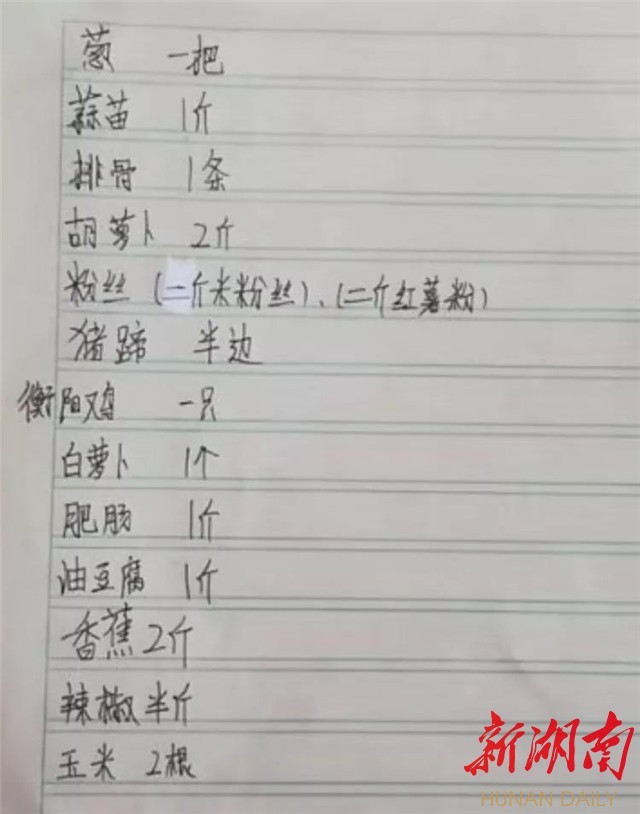 葱 一把
蒜苗 1斤
排骨 1条
胡萝卜 2斤
粉丝 (二斤米粉丝)、(二斤红薯粉)
猪蹄 半边
衡阳鸡 一只
白萝卜 1个
肥肠 1斤
油豆腐 1斤
香蕉 2斤
辣椒 半斤
玉米 2根
新湖南
HUNAN DAILY